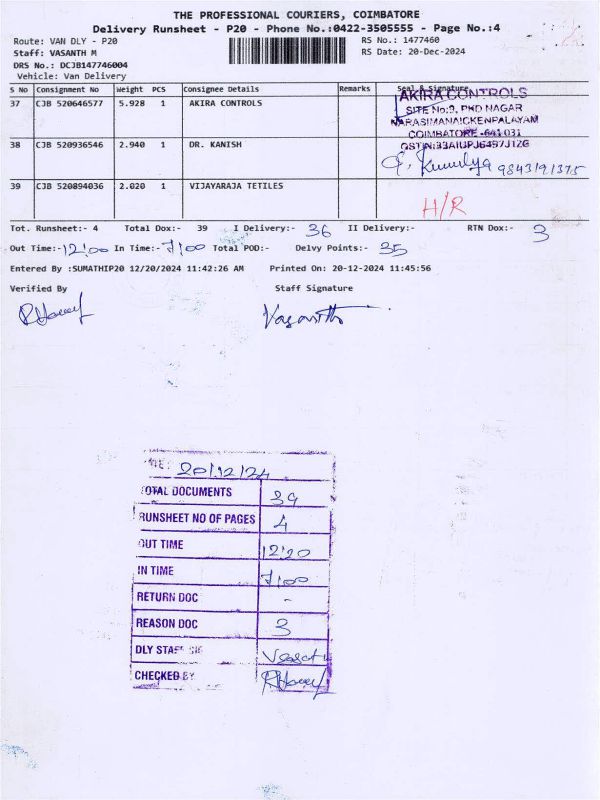 THE PROFESSIONAL COURIERS, COIMBATORE
Delivery Runsheet - P20 - Phone No.:0422-3505555 - Page No.:4
Route: VAN DLY - P20
RS No.: 1477460
Staff: VASANTH M
RS Date: 20-Dec-2024
DRS No.: DCJB147746004
Vehicle: Van Delivery
S No Consignment No Weight PCS Consignee Details Remarks Seal & Signature
37 CJB 520646577 5.928 1 AKIRA CONTROLS
AKIRA CONTROLS
SITE No:9, PKD NAGAR
NARASIMANAICKENPALAYAM
COIMBATORE -641 031
GSTIN:33AIUPJ6497J1ZG
38 CJB 520936546 2.940 1 DR. KANISH
9843191375
39 CJB 520894036 2.020 1 VIJAYARAJA TETILES
H/R
Tot. Runsheet:- 4 Total Dox:- 39 I Delivery:- 36 II Delivery:- RTN Dox:- 3
Out Time:- 12:00 In Time:- 7:00 Total POD:- Delvy Points:- 35
Entered By :SUMATHIP20 12/20/2024 11:42:26 AM Printed On: 20-12-2024 11:45:56
Verified By Staff Signature
Vasanth
20/12/24
TOTAL DOCUMENTS 39
RUNSHEET NO OF PAGES 4
OUT TIME 12:20
IN TIME 7:00
RETURN DOC -
REASON DOC 3
DLY STAFF SIG
CHECKED BY